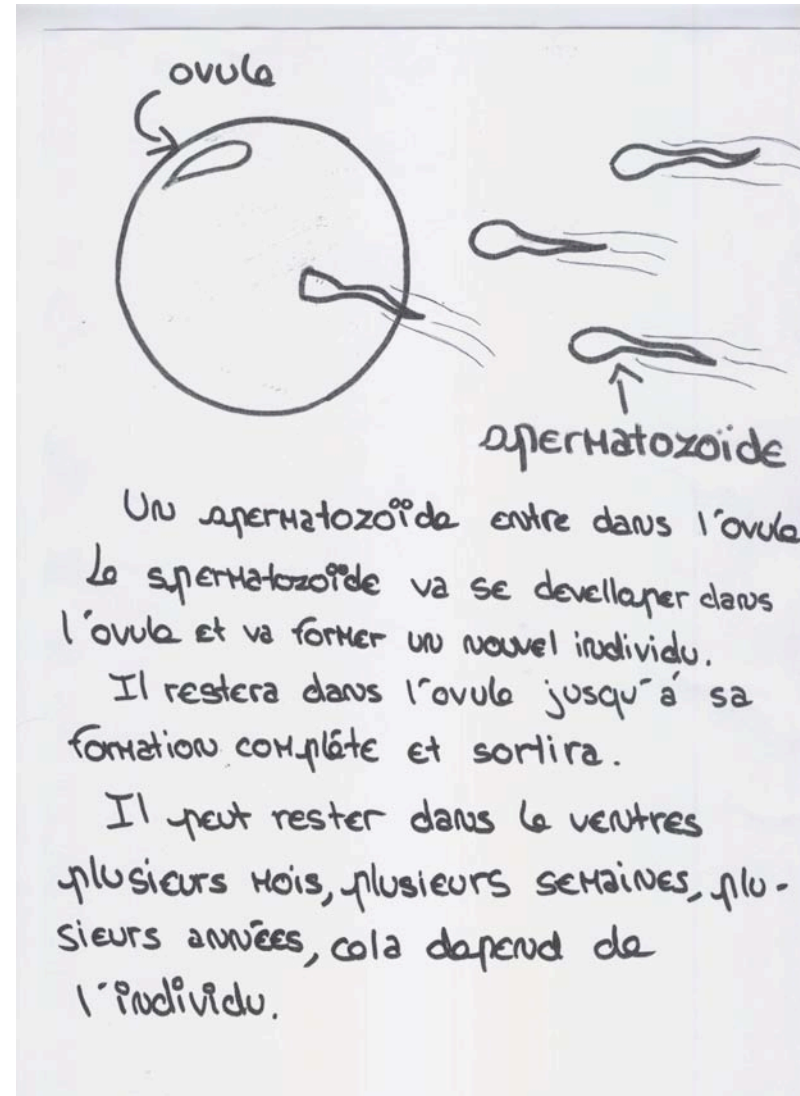 ovule
spermatozoïde
Un spermatozoïde entre dans l'ovule
Le spermatozoïde va se develloper dans
l'ovule et va former un nouvel individu.
Il restera dans l'ovule jusqu'á sa
formation complête et sortira.
Il peut rester dans le ventres
plusieurs mois, plusieurs semaines, plu-
sieurs années, cela depend de
l'individu.